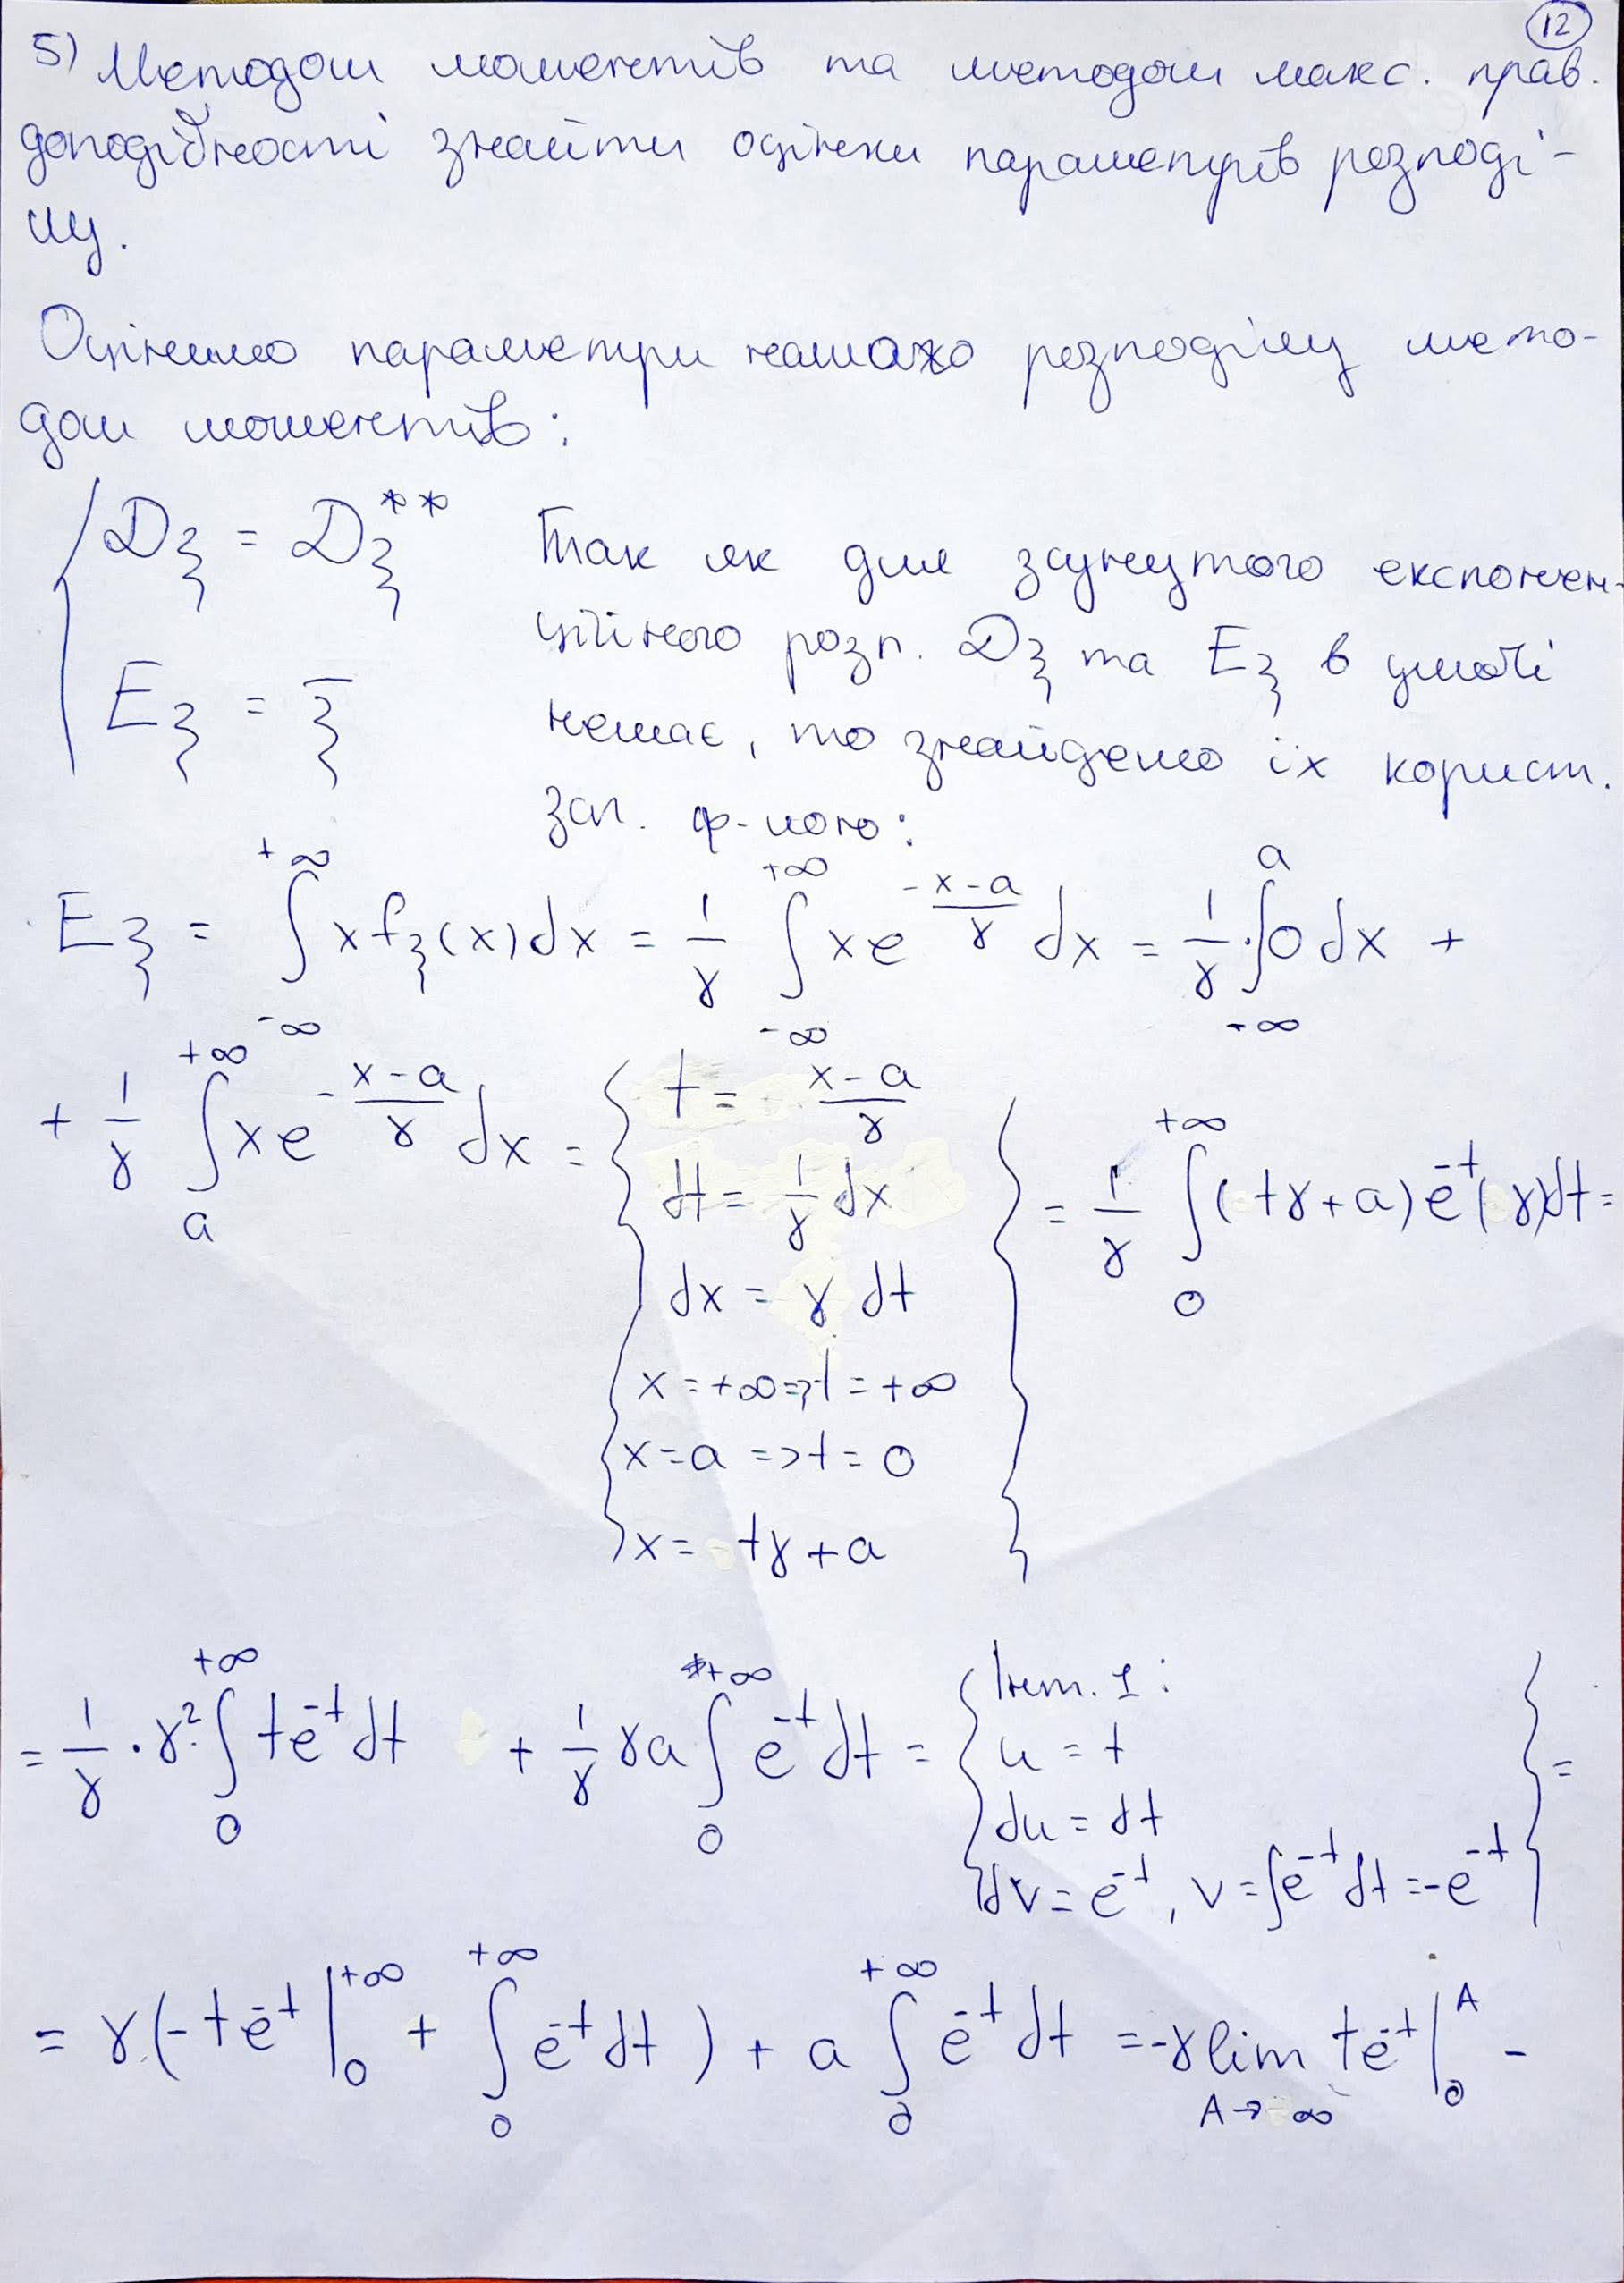 12
5) Методом моментів та методом макс. прав.
доподібності знайти оцінки параметрів розподі-
лу.
Оцінимо параметри нашого розподілу мето-
дом моментів:
Dξ = D**ξ Так як для зсунутого експонен-
ційного розп. Dξ та Eξ в умові
Eξ = ξ̅ немає, то знайдемо їх корист.
заг. ф-лою:
Eξ = ∫_{-∞}^{+∞} x f_ξ(x)dx = 1/γ ∫_{-∞}^{+∞} xe^{-(x-a)/γ} dx = 1/γ · ∫_{-∞}^{a} 0 dx +
+ 1/γ ∫_{a}^{+∞} xe^{-(x-a)/γ} dx = { t = (x-a)/γ } = 1/γ ∫_{0}^{+∞} (tγ+a)e^{-t}(γ)dt =
dt = 1/γ dx
dx = γ dt
x = +∞ => t = +∞
x = a => t = 0
x = tγ + a
= 1/γ · γ² ∫_{0}^{+∞} te^{-t}dt + 1/γ γa ∫_{0}^{+∞} e^{-t}dt = { Інт. 1: } =
u = t
du = dt
dv = e^{-t}, v = ∫e^{-t}dt = -e^{-t}
= γ(-te^{-t}|_{0}^{+∞} + ∫_{0}^{+∞} e^{-t}dt) + a ∫_{0}^{+∞} e^{-t}dt = -γ lim_{A→∞} te^{-t}|_{0}^{A} -